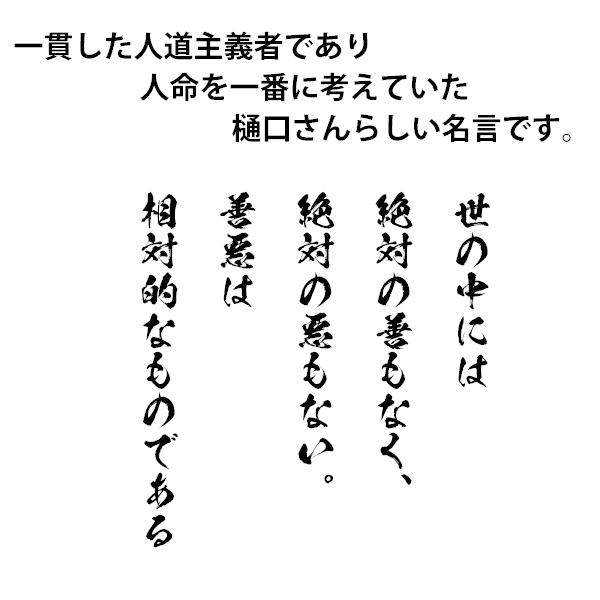 一貫した人道主義者であり
人命を一番に考えていた
樋口さんらしい名言です。
世の中には
絶対の善もなく、
絶対の悪もない。
善悪は
相対的なものである